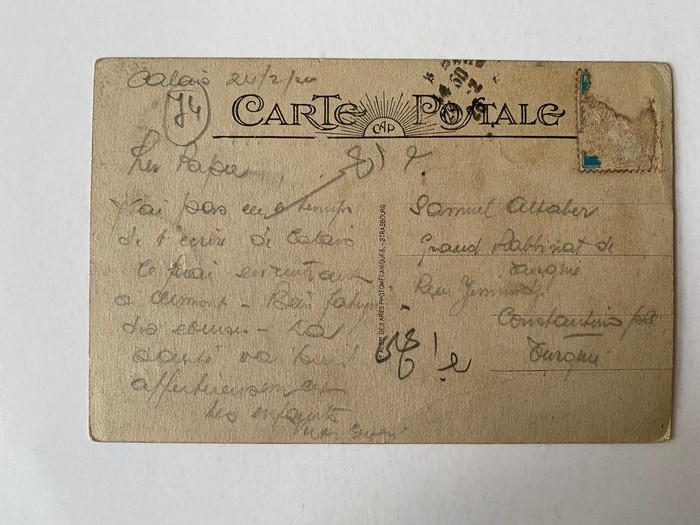 Calais 24/2/20
74
CARTE POSTALE
CAP
Cher Papa
J'ai pas eu le temps
de t'écrire de Calais
Le ferai
a Clermont - Bien fatigué
des courses - La
santé va bien
affectueusement
tes enfants
ATELIER DES ARTS PHOTOMÉCANIQUES - STRASBOURG
Samuel Altaber
Grand Rabbinat de
Turquie
Rue Yeminidji
Constantinople
Turquie